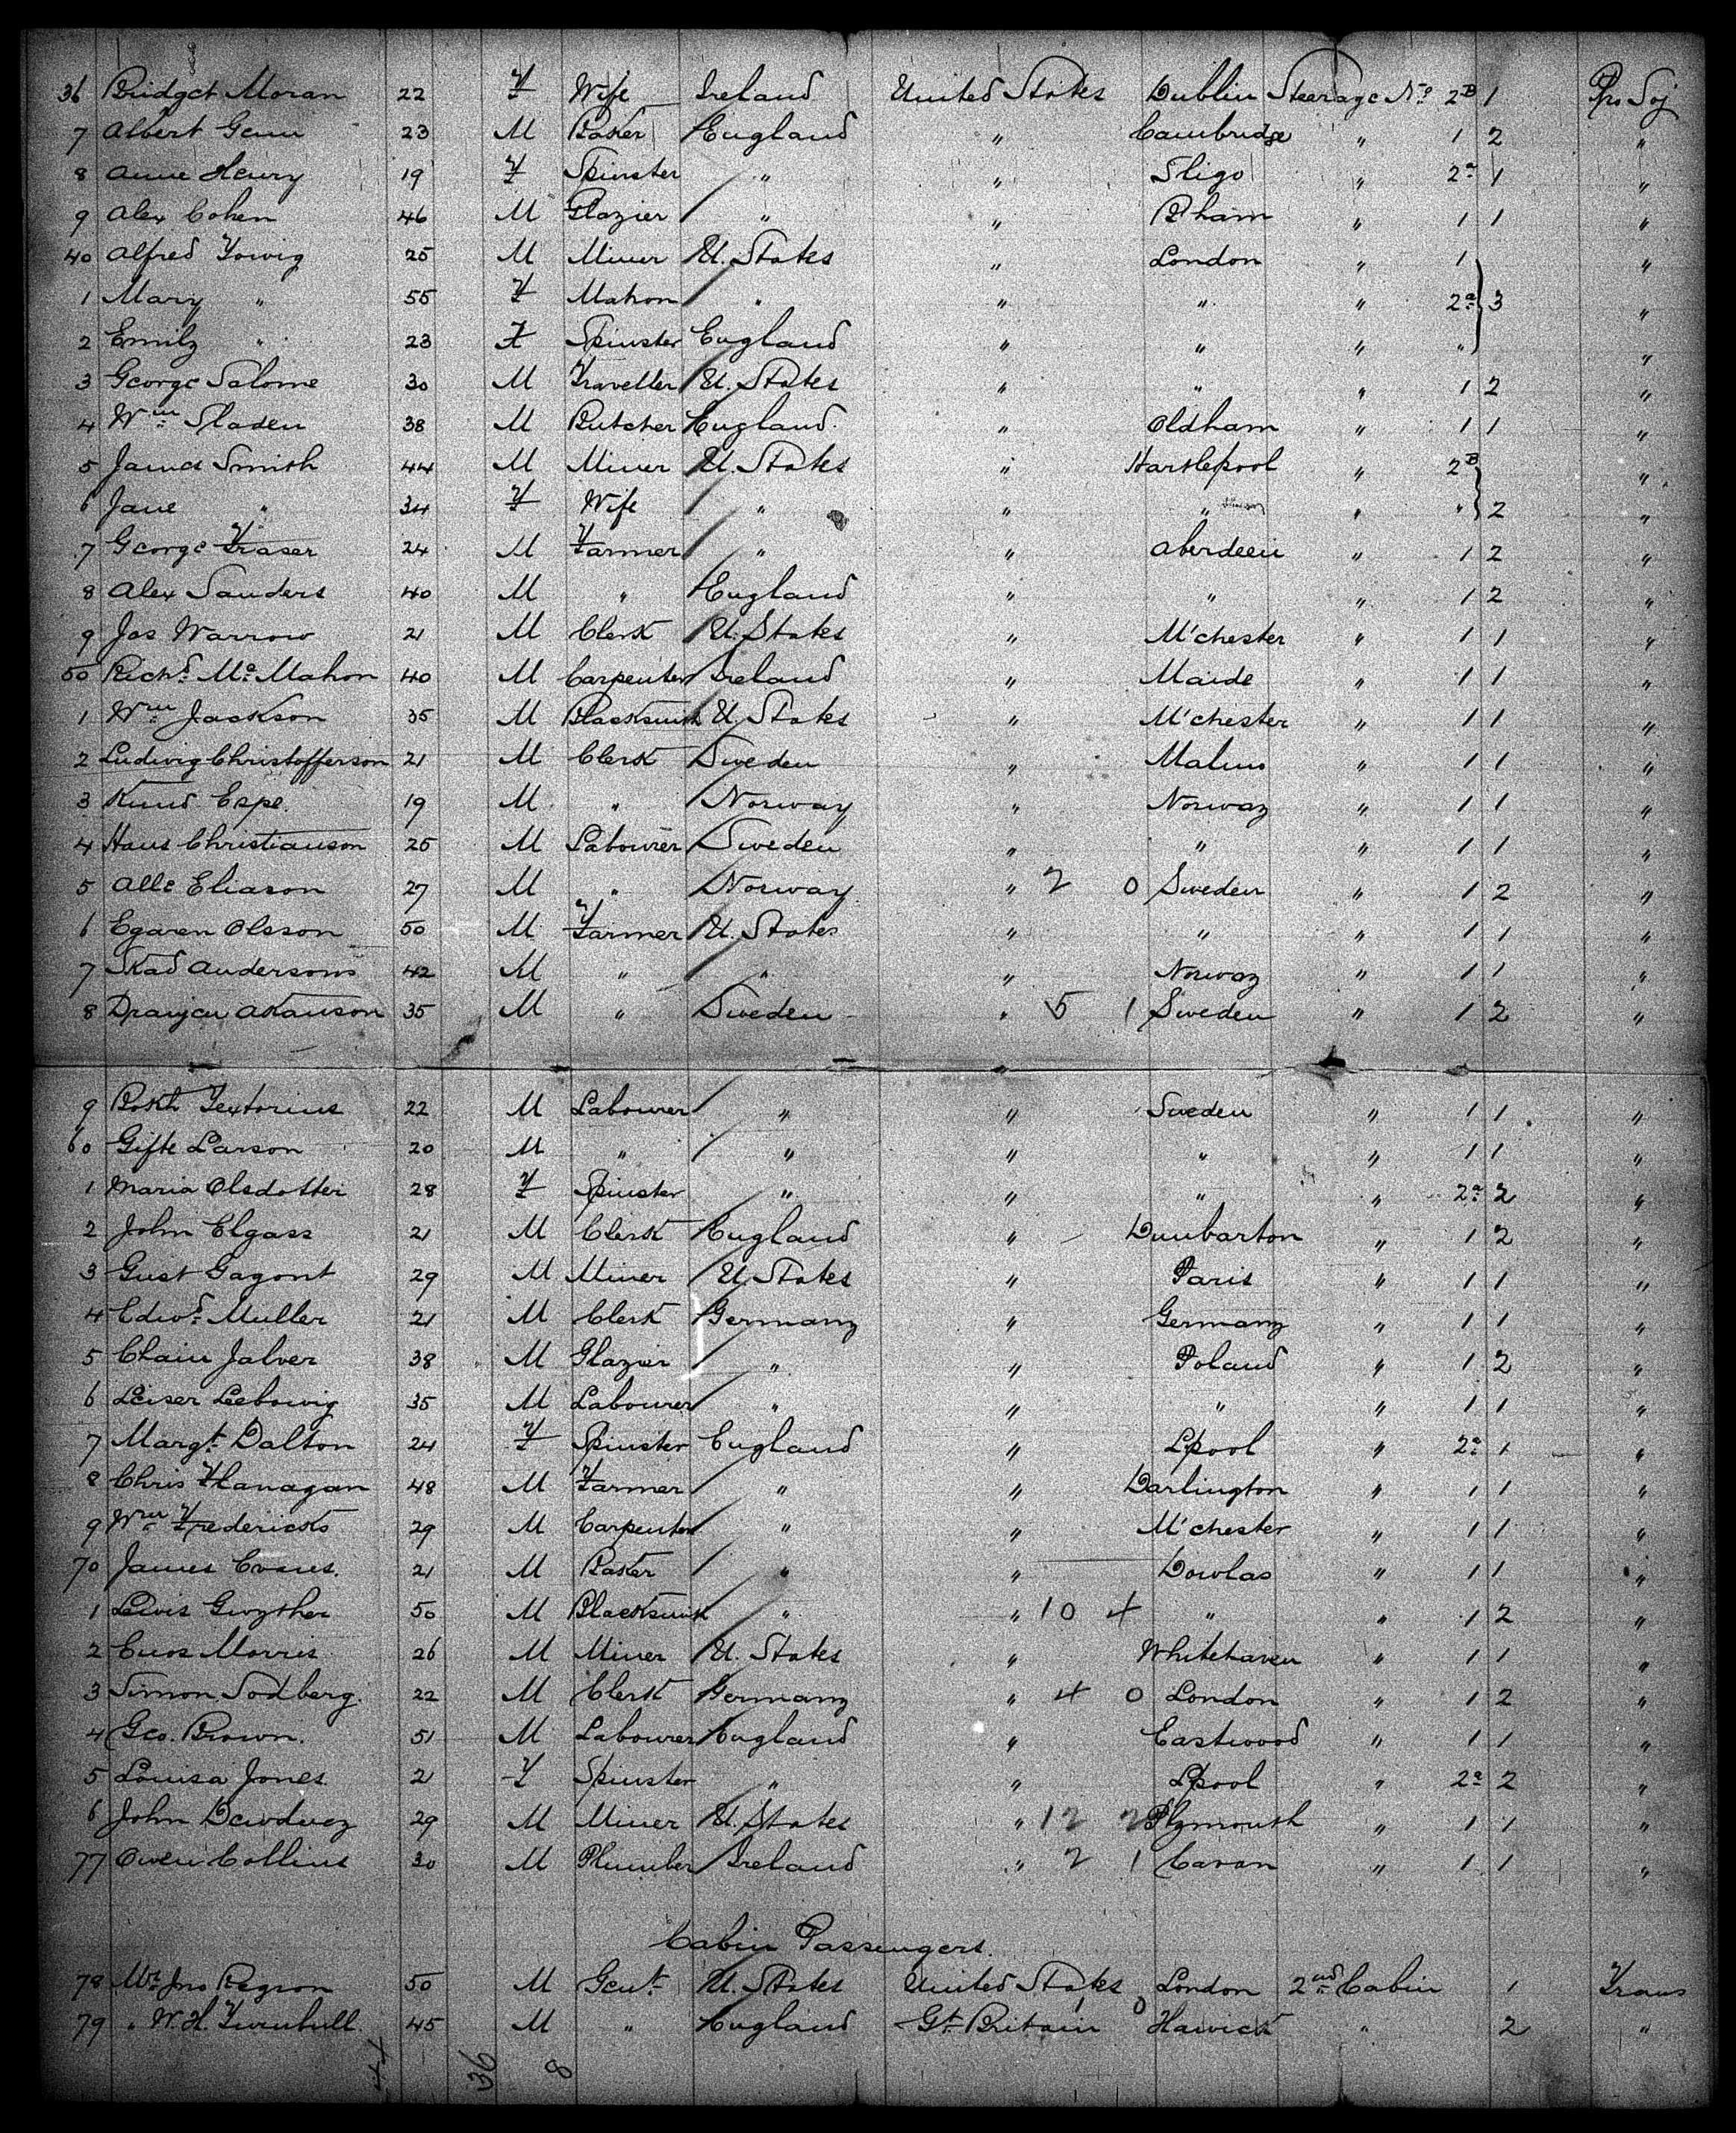 36 Bridget Moran 22 F Wife Ireland United States Dublin Steerage No 2B 1 Pro Soj
7 Albert Genn 23 M Baker England " Cambridge " 1 2 "
8 Anne Henry 19 F Spinster " " Sligo " 2a 1 "
9 Alex Cohen 46 M Glazier " " B'ham " 1 1 "
40 Alfred Yowig 25 M Miner U. States " London " 1 "
1 Mary " 55 F Matron " " " " 2a 3 "
2 Emily " 23 F Spinster England " " " " "
3 George Salome 30 M Traveller U. States " " " 1 2 "
4 Wm Sladen 38 M Butcher England " Oldham " 1 1 "
5 James Smith 44 M Miner U. States " Hartlepool " 2B "
6 Jane " 34 F Wife " " " " " 2 "
7 George Fraser 24 M Farmer " " Aberdeen " 1 2 "
8 Alex Sanders 40 M " England " " " 1 2 "
9 Jas Warrow 21 M Clerk U. States " M'chester " 1 1 "
50 Richd Mc Mahon 40 M Carpenter Ireland " Maide " 1 1 "
1 Wm Jackson 35 M Blacksmith U. States " M'chester " 1 1 "
2 Ludwig Christofferson 21 M Clerk Sweden " Malmo " 1 1 "
3 Knud Espe 19 M " Norway " Norway " 1 1 "
4 Hans Christianson 25 M Labourer Sweden " " " 1 1 "
5 Alle Eliason 27 M " Norway " 2 0 Sweden " 1 2 "
6 Egaren Olsson 50 M Farmer U. States " " " 1 1 "
7 Skad Andersons 42 M " " " Norway " 1 1 "
8 Akanson 35 M " Sweden " 5 1 Sweden " 1 2 "
9 Textorius 22 M Labourer " " Sweden " 1 1 "
60 Gifte Larson 20 M " " " " " 1 1 "
1 Maria Olsdotter 28 F Spinster " " " " 2a 2 "
2 John Elgass 21 M Clerk England " Dunbarton " 1 2 "
3 Gust Gagont 29 M Miner U. States " Paris " 1 1 "
4 Edwd Muller 21 M Clerk Germany " Germany " 1 1 "
5 Chain Jalver 38 M Glazier " " Poland " 1 2 "
6 Leiser Leebowig 35 M Labourer " " " " 1 1 "
7 Margt Dalton 24 F Spinster England " L'pool " 2a 1 "
8 Chris Flanagan 48 M Farmer " " Darlington " 1 1 "
9 Wm Fredericks 29 M Carpenter " " M'chester " 1 1 "
70 James Evans 21 M Baker " " Dowlas " 1 1 "
1 Lewis Gwyther 50 M Blacksmith " " 10 4 " " 1 2 "
2 Enos Morris 26 M Miner U. States " Whitehaven " 1 1 "
3 Simon Sodberg 22 M Clerk Germany " 4 0 London " 1 2 "
4 Geo. Brown 51 M Labourer England " Eastwood " 1 1 "
5 Louisa Jones 21 F Spinster " " L'pool " 2a 2 "
6 John 29 M Miner U. States " 12 2 Plymouth " 1 1 "
77 Owen Collins 30 M Plumber Ireland " 2 1 Cavan " 1 1 "
Cabin Passengers.
78 Mr Jno Regron 50 M Gent U. States United States London 2nd Cabin 1 Trans
79 " W. H. Turnbull 45 M " England Gt. Britain 1 0 Hawick " 2 "
44 36 8